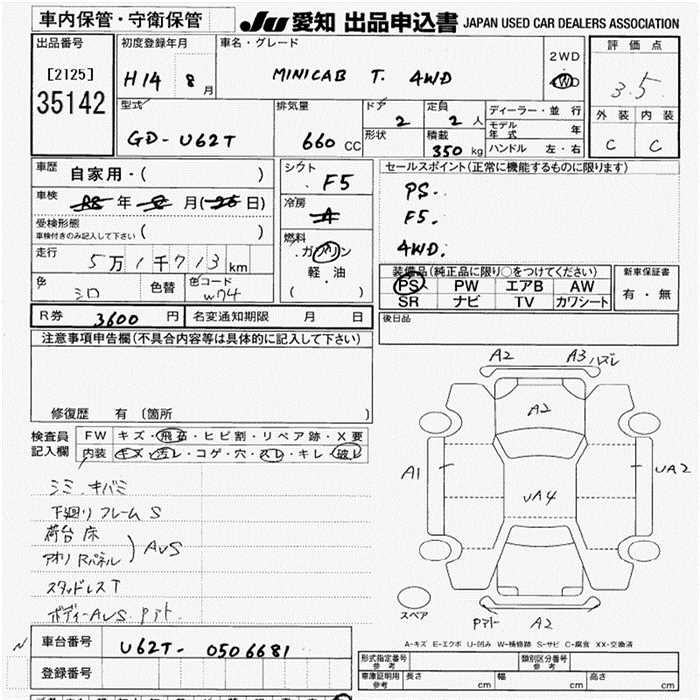 車内保管・守衛保管
JU 愛知 出品申込書 JAPAN USED CAR DEALERS ASSOCIATION
出品番号
[2125]
35142
初度登録年月
H14 8月
車名・グレード
MINICAB T. 4WD
2WD
4WD
評価点
3.5
外装 内装
C C
型式
GD-U62T
排気量
660 CC
ドア
2
形状
定員
2人
積載
350kg
ディーラー・並行
モデル年式 年
ハンドル 左・右
車歴
自家用・( )
車検
年 月( 日)
受検形態
車検付きのみ記入して下さい ( )
走行
5万1千713km
色
シロ
色替
色コード
W74
シフト
F5
冷房
燃料
ガソリン
軽・油
( )
セールスポイント(正常に機能するものに限ります)
PS.
F5.
4WD.
装備品(純正品に限り○をつけてください)
PS PW エアB AW
SR ナビ TV カワシート
新車保証書
有・無
R券 3600円
名変通知期限 月 日
後日品
注意事項申告欄(不具合内容等は具体的に記入して下さい)
修復歴 有 〔箇所 〕
検査員記入欄
FW キズ・飛石・ヒビ割・リペア跡・X要
内装 キズ・汚レ・コゲ・穴・スレ・キレ・破レ
シミ キバミ
下廻り フレーム S
荷台 床
アオリ Rパネル ) AUS
スタッドレスT
ボディーAUS. Pアト.
A2 A3 ハズレ
A2
A1
UA2
UA4
スペア
Pアト A2
A-キズ E-エクボ U-凹み W-補修跡 S-サビ C-腐食 XX-交換済
車台番号
U62T-0506681
登録番号
形式指定番号 参考
類別区分番号 参考
車庫証明用 参考
長さ cm 幅 cm 高さ cm